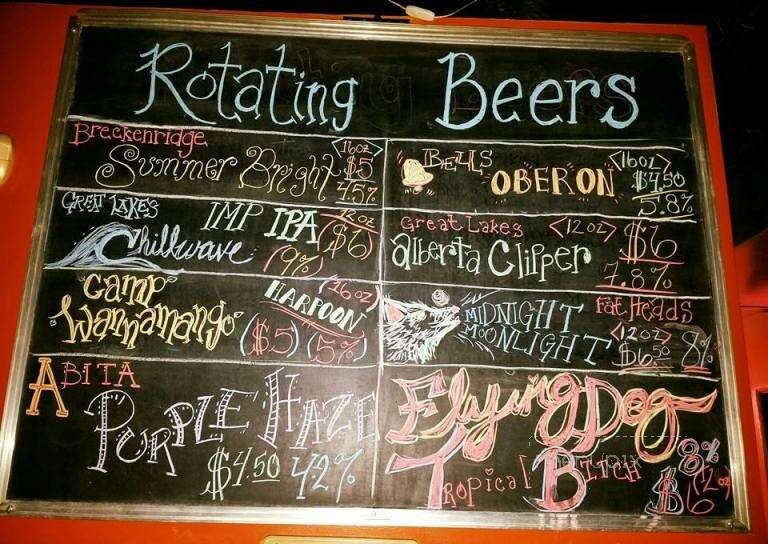 Rotating Beers
Breckenridge
Summer Bright
<16oz>
$5
4.5%
GREAT LAKES
IMP IPA
Chillwave
12oz
($6)
(9%)
"Camp
Wannamango"
(16oz)
HARPOON
($5) (5%)
ABITA
PURPLE HAZE
$4.50 42%
BELLS
OBERON
<16oz>
$4.50
5.8%
Great Lakes <12oz>
alberta Clipper
$6
7.8%
MIDNIGHT
MOONLIGHT
Fat Heads
<12oz>
$6.50 8%
Flying Dog
Tropical Bitch
8%
$6 (12oz)